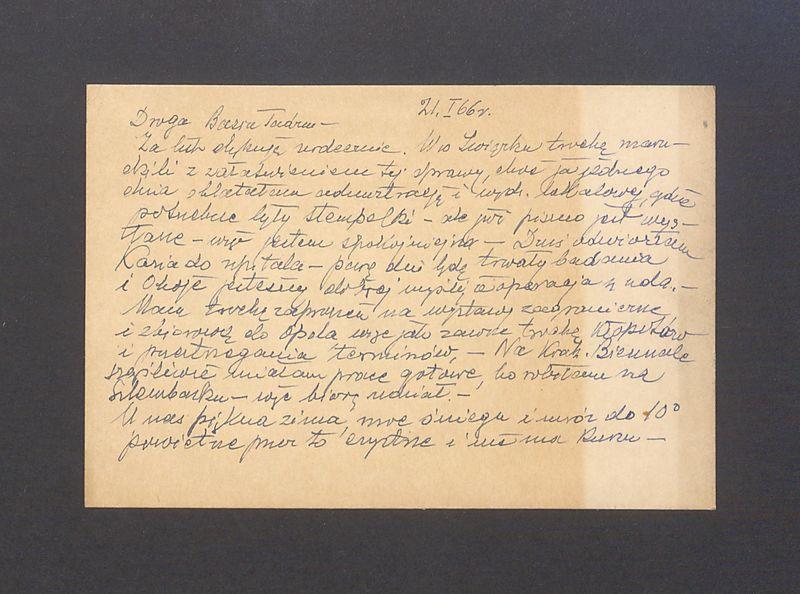 21. I 66 r.
Droga Basiu Tadziu –
Za list dziękuję serdecznie. W Związku trochę maru-
dzili z załatwieniem tej sprawy, choć ja jednego
dnia oblatałam administrację i wydz. lokalowy, gdzie
potrzebne były stempelki – ale już pismo jest wys-
łane – więc jestem spokojniejsza – Dziś odwiozłam
Kazia do szpitala – parę dni będą trwały badania
i Oboje jesteśmy dobrej myśli, że operacja się uda. –
Mam trochę zaproszeń na wystawy zagraniczne
i zbiorową do Opola więc jak zawsze trochę kłopotów
i przestrzegania terminów. – Na Krak. Biennale
szczęśliwie miałam pracę gotową, bo robiłam na
Szlembarku – więc biorę udział. –
U nas piękna zima, moc śniegu i mróz do 10°
powietrze przez to czystsze i nie ma kurzu –